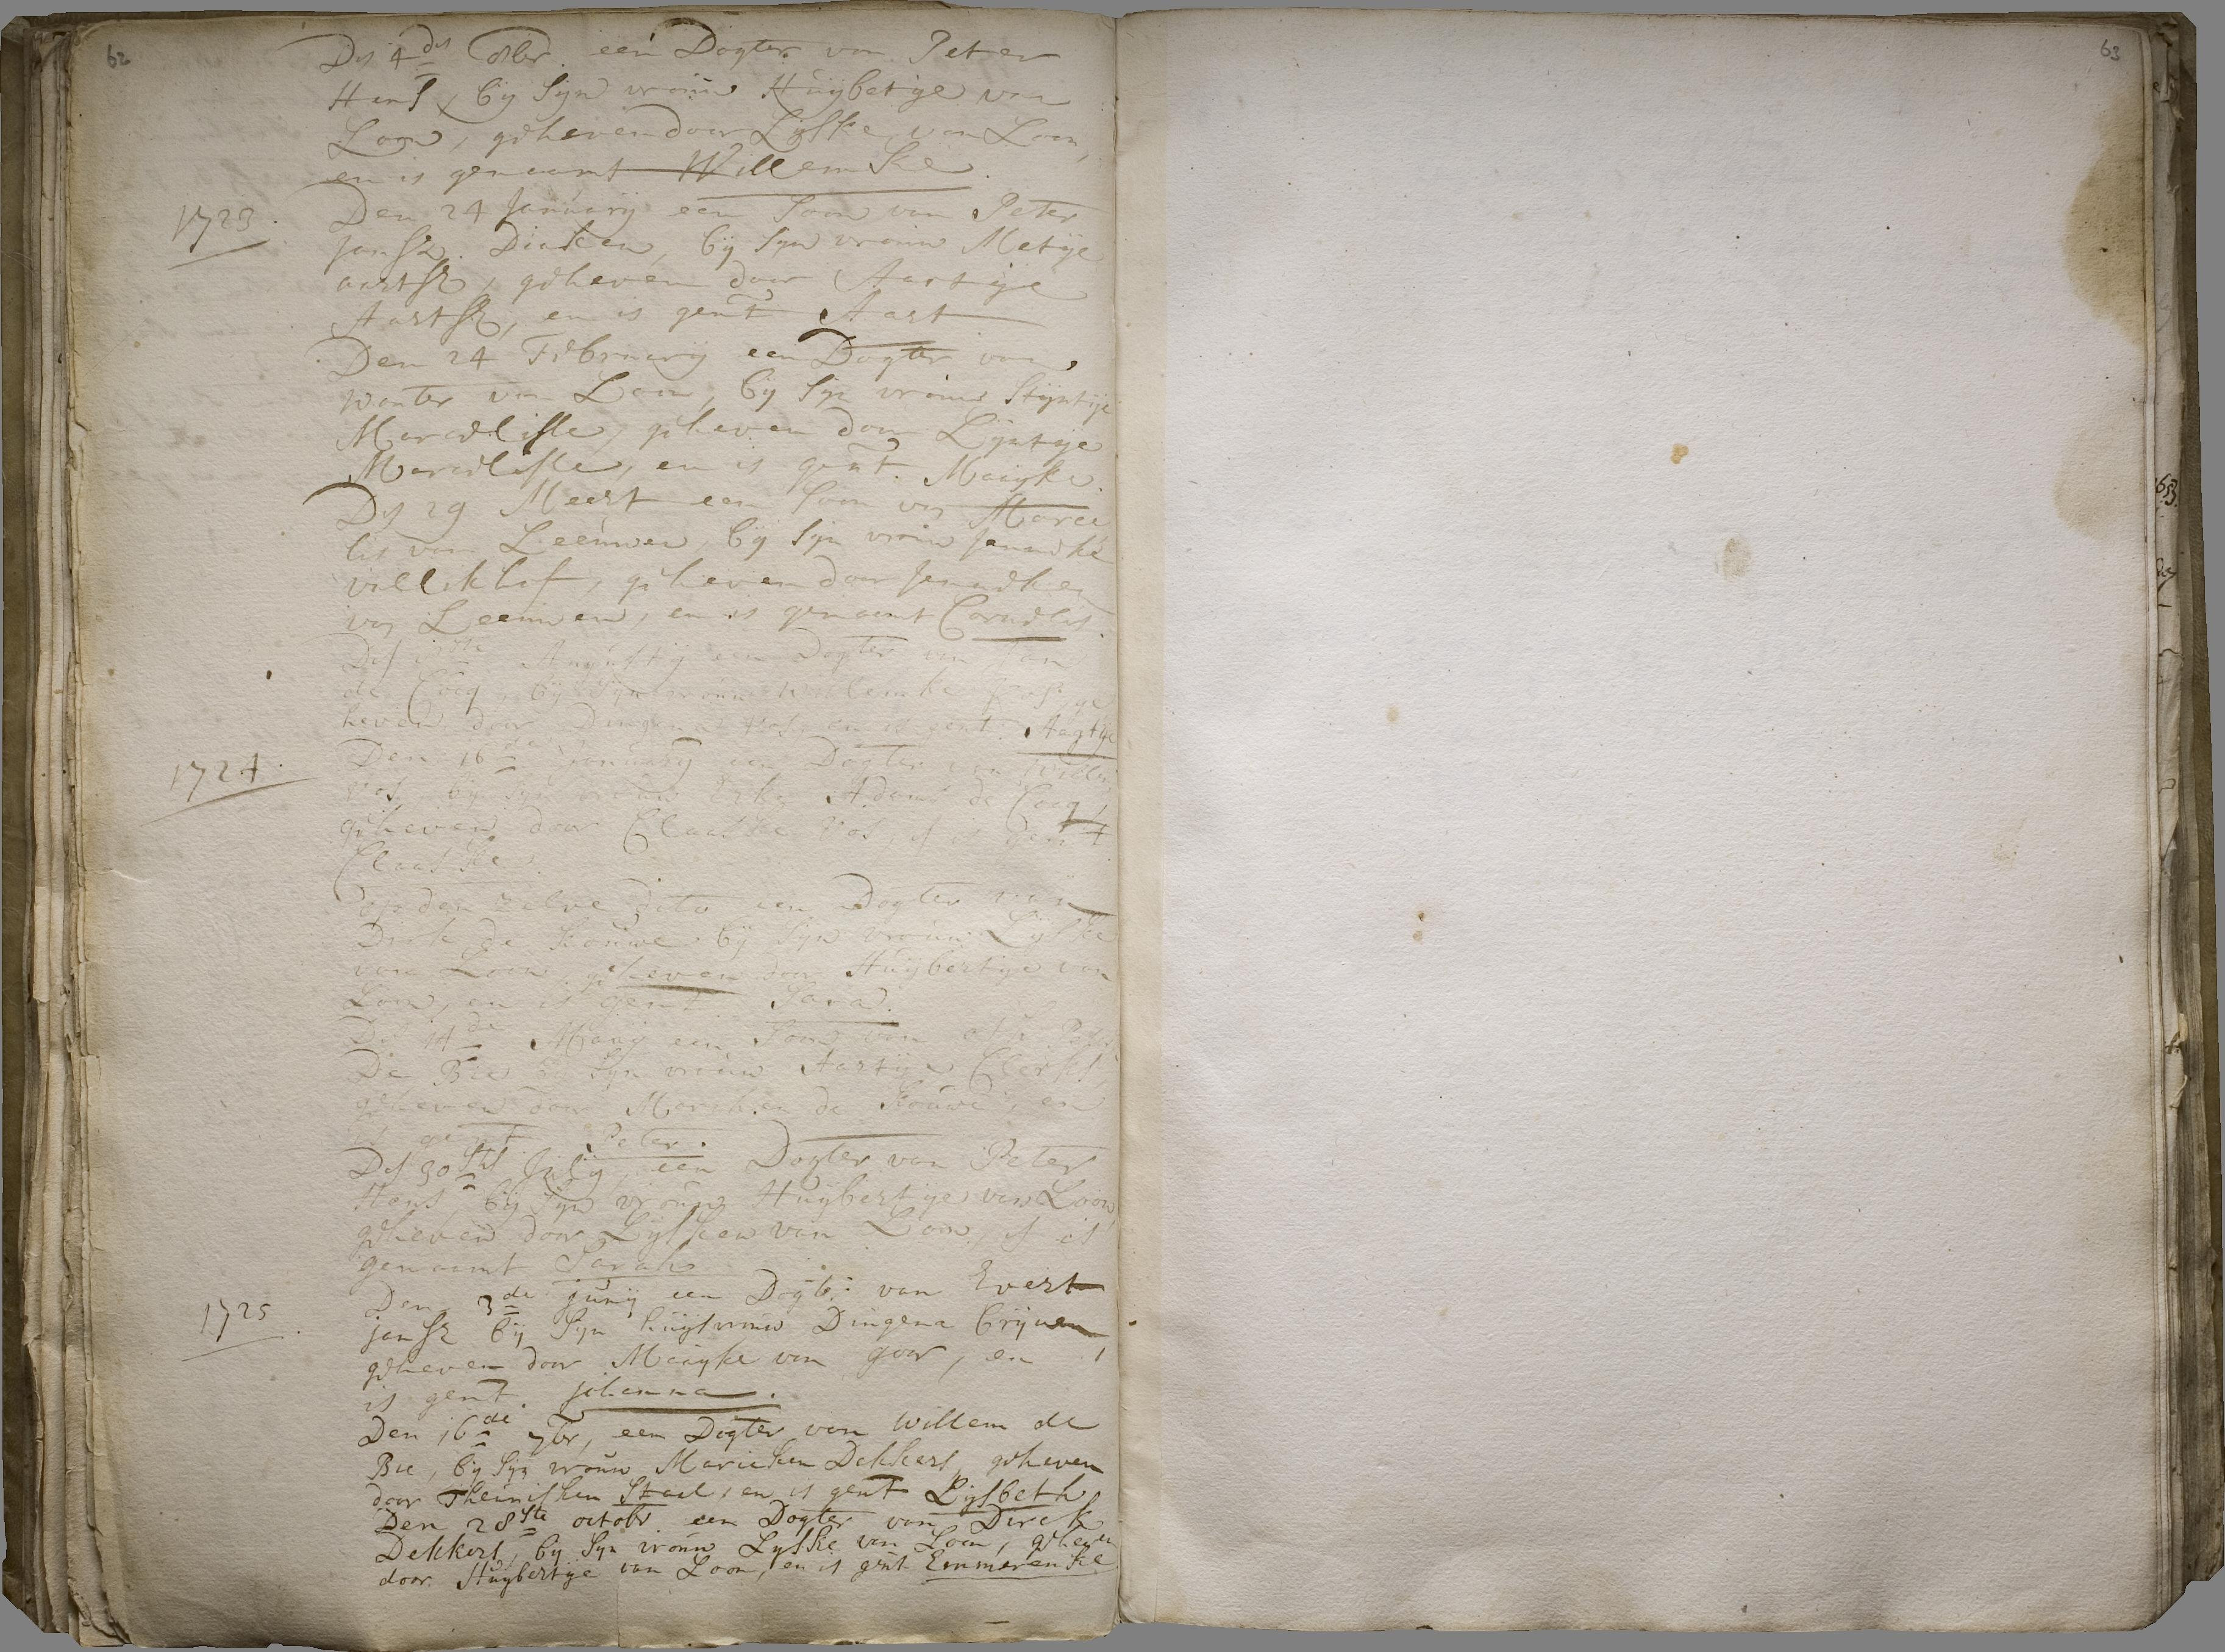 62
Ds 4des 8br. een Dogter van Peter
Hens, bij sijn vrouw Huijbetije van
Loon, geheven door Lijske van Loon,
en is genaamt Willemske.
1723.
Den 24 January een Soon van Peter
Jansz. Dinken, bij sijn vrouw Metije
aartsz, geheven door Aartije
Aartsz, en is gent Aart
Den 24 February een Dogter van
Wouter van Loon, bij sijn vrouw Stijntije
Marcelisse, geheven door Lijntije
Marcelisse, en is gent. Maijke.
Ds 29 Meert een Soon van Marce
lis van Leeuwen, bij sijn vrouw Jenneke
, geheven door Jenneken
van Leeuwen, en is genaamt Cornelis.
Des Augustij een Dogter van Jan
de Cocq, bij sijn vrouw Willemke Vos, ge
heven door Vos, en is gent. Aagtije
1724.
Den 16de January een Dogter van
Vos, bij sijn vrouw Adams de Cocq,
geheven door Claaske Vos, is gent
Claaske.
op den zelve dito een Dogter van
Dirk de Kouwe bij sijn vrouw Lijske
van Loon, geheven door Huijbertije van
Loon, en is gent Sara.
Ds 14de Maaij een Soon van
De Bie bij sijn vrouw Aartije Clerks,
geheven door Mariken de Kouwe, en
is gent Peter.
Des 30sts July een Dogter van Peter
Hens, bij sijn vrouw Huijbertije van Loon,
geheven door Lijsken van Loon, is
genaamt Sarah
1725.
Den 3de Junij een Dogtr: van Evert
jansz bij sijn huijsvrouw Dingena Crijnen
geheven door Maijke van goor, en
is gent. johanna.
Den 16de 7br, een Dogter van Willem de
Bie, bij sijn vrouw Marieken Dekkers, geheven
door Theunisken Staal, en is gent Lijsbeth
Den 28ste octobr. een Dogter van Dirck
Dekkers, bij sijn vrouw Lyske van Loon, geheven
door Huijbertije van Loon, en is gent Emmerenske
63